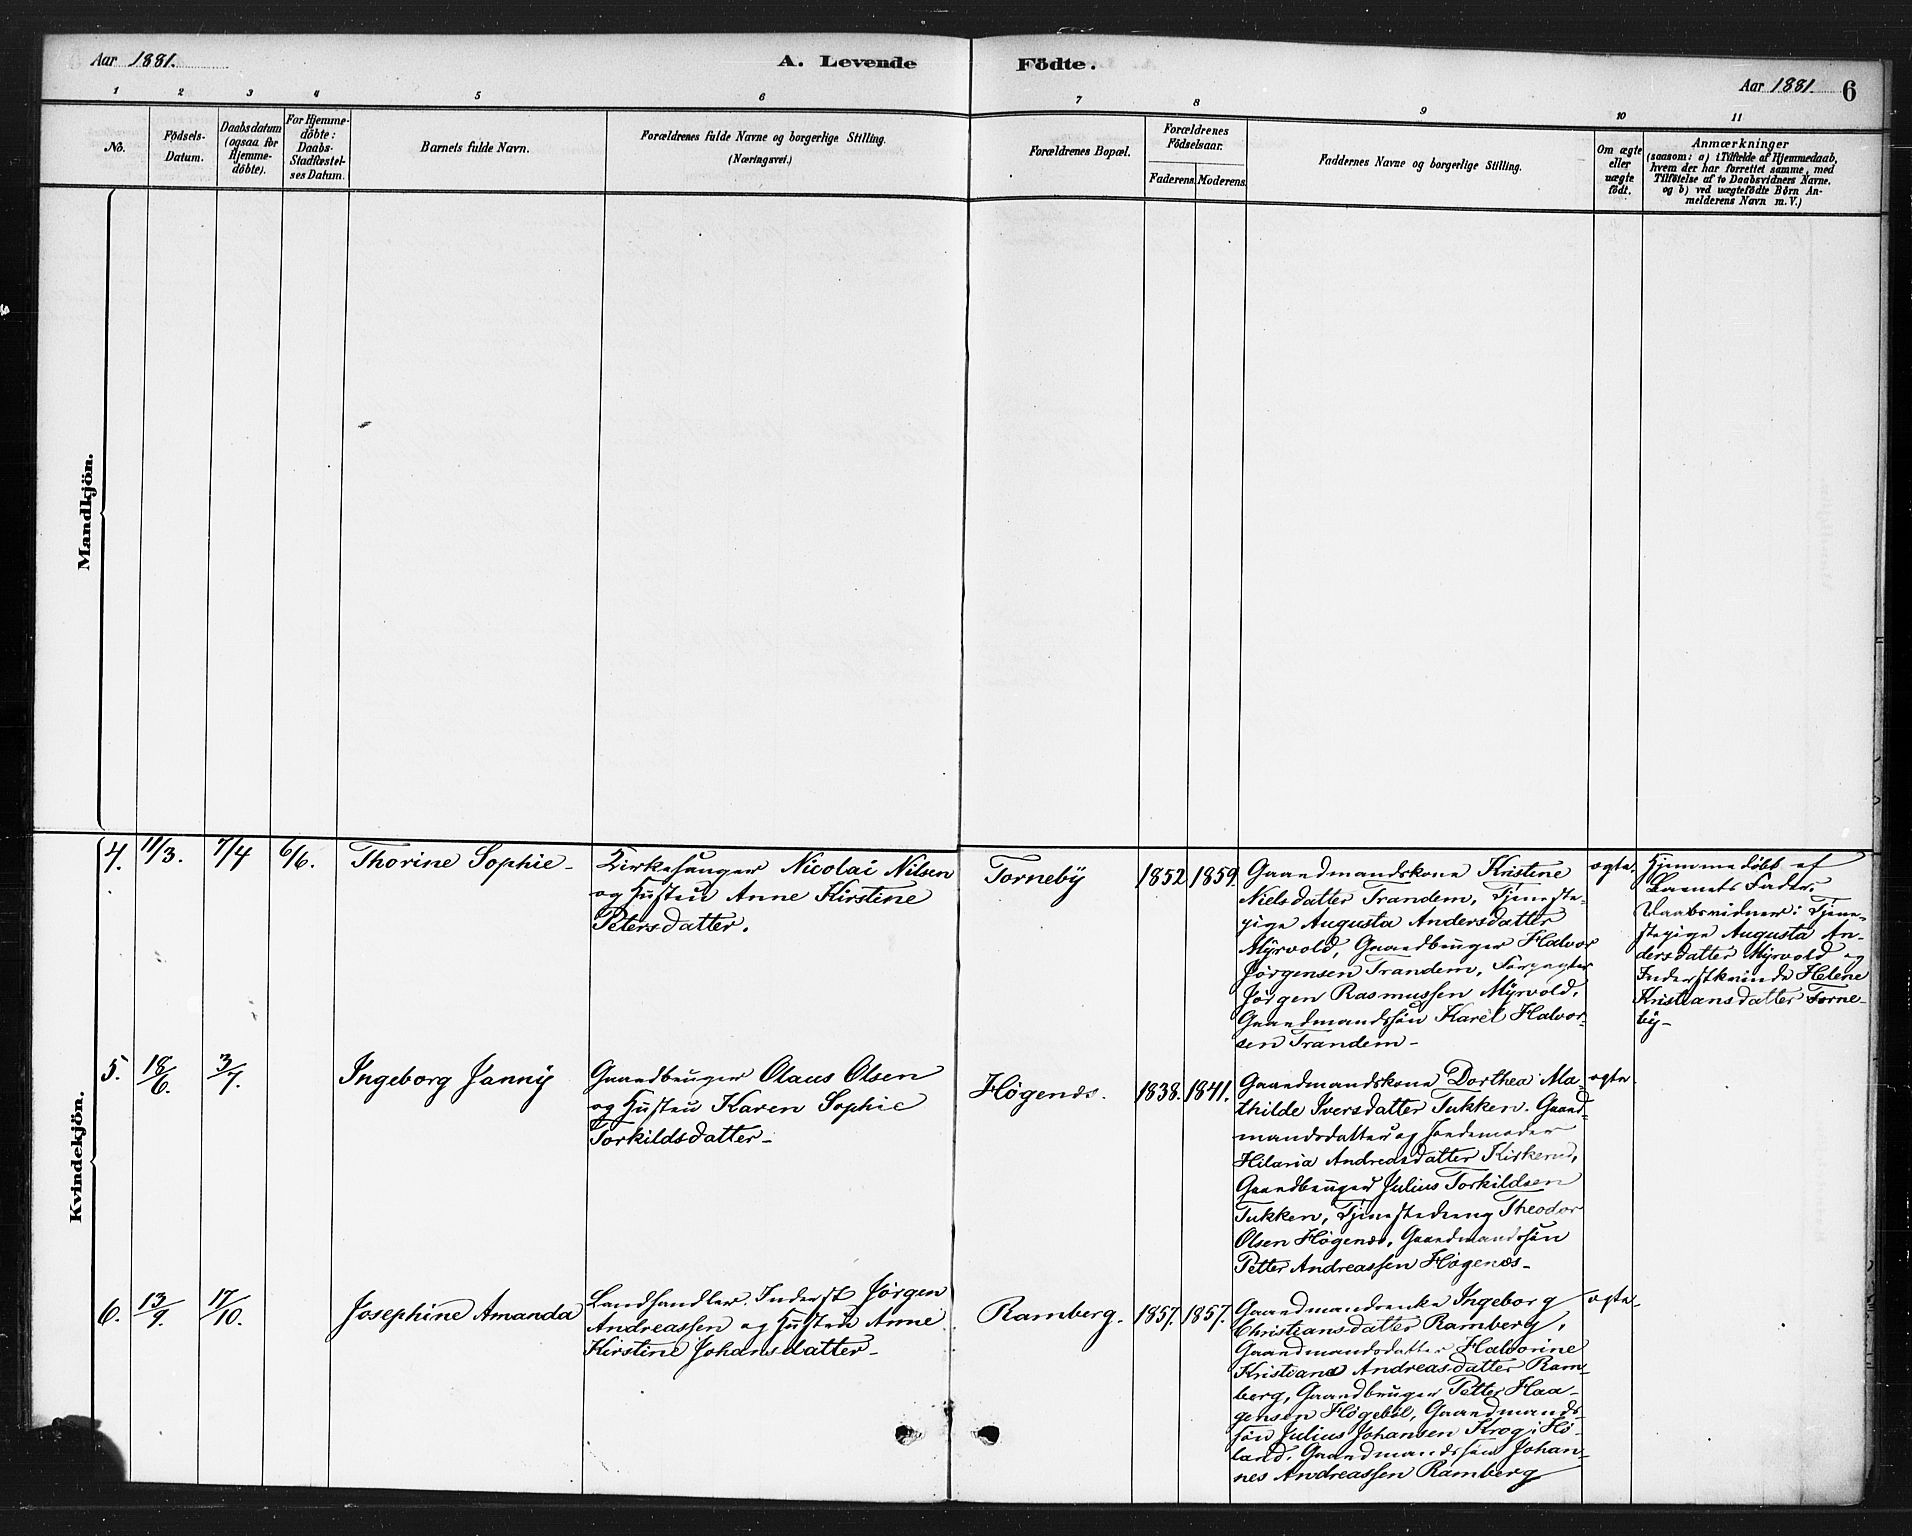 Aar 1881.
A. Levende
Födte.
Aar 1881.
6
1
2
3
4
5
6
7
8
9
10
11
No.
Födsels-
Datum.
Daabsdatum
(ogsaa for
Hjemme-
döbte).
For Hjemme-
döbte:
Daabs-
Stadfæstel-
ses Datum.
Barnets fulde Navn.
Forældrenes fulde Navne og borgerlige Stilling.
(Næringsvei.)
Forældrenes Bopæl.
Forældrenes
Födselsaar.
Faderens.
Moderens.
Faddernes Navne og borgerlige Stilling.
Om ægte
eller
uægte
födt.
Anmærkninger
(saasom: a) i Tilfælde af Hjemmedaab,
hvem der har forrettet samme, med
Tilföielse af to Daabsvidners Navne,
og b) ved uægtefödte Börn An-
melderens Navn m. V.)
Mandkjön.
Kvindekjön.
4.
11/3.
7/4
6/6.
Thorine Sophie-
Kirkesanger Nicolai Nilsen
og Hustru Anne Kirstine
Petersdatter.
Torneby
1852
1859.
Gaardmandskone Kristine
Nielsdatter Trandem, Tjeneste-
pige Augusta Andersdatter
Myrvold, Gaardbruger Halvor
Jørgensen Trandem, Forpagter
Jørgen Rasmussen Myrvold,
Gaardmandssøn Karel Halvor-
sen Trandem-
ægte.
Hjemmedøbt af
Barnets Fader.
Daabsvidner: Tjene-
stepige Augusta An-
dersdatter Myrvold og
Inderstkvinde Helene
Kristiansdatter Torne-
by-
5.
18/6.
3/7.
Ingeborg Janny
Gaardbruger Olaus Olsen
og Hustru Karen Sophie
Torkildsdatter-
Høgenæs.
1838.
1841.
Gaardmandskone Dorthea Ma-
thilde Iversdatter Tukken. Gaard-
mandsdatter og Jordemoder
Hilaria Andreasdatter Kirkerud,
Gaardbruger Julius Torkildsen
Tukken, Tjenestedreng Theodor
Olsen Høgenæs, Gaardmandssøn
Petter Andreassen Høgenæs-
ægte
6.
13/9.
17/10.
Josephine Amanda
Landhandler. Inderst Jørgen
Andreassen og Hustru Anne
Kirstine Johansdatter-
Ramberg.
1857.
1857.
Gaardmandsenke Ingeborg
Christiansdatter Ramberg,
Gaardmandsdatter Halvorine
Kristiane Andreasdatter Ram-
berg, Gaardbruger Petter Haa-
gensen Høgebøl, Gaardmands-
søn Julius Johansen Krog i Hø-
land, Gaardmandssøn Johan-
nes Andreassen Ramberg
ægte-